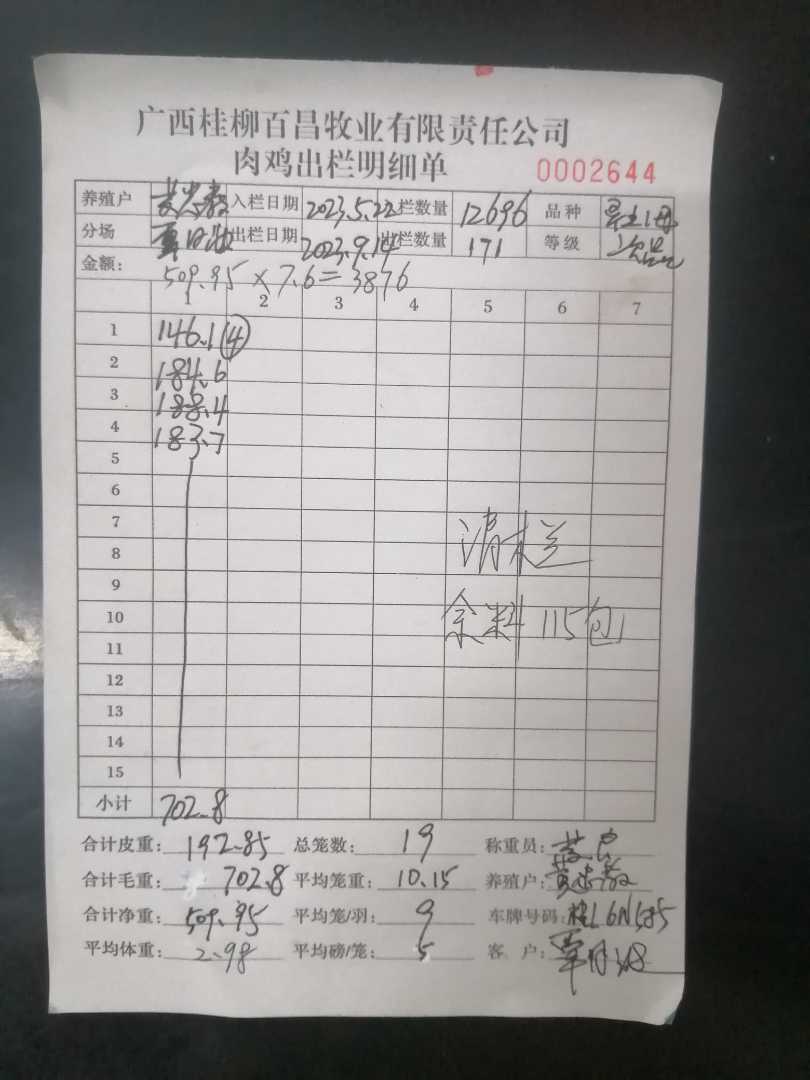 广西桂柳百昌牧业有限责任公司
肉鸡出栏明细单 0002644
养殖户 入栏日期 2023.5.22 栏数量 12696 品种
分场 出栏日期 2023.9.14 出栏数量 171 等级 次品
金额: 509.95×7.6=3876
1 2 3 4 5 6 7
1 146.1(4)
2 184.6
3 188.4
4 183.7
5
6
7 清
8
9
10 余料115包
11
12
13
14
15
小计 702.8
合计皮重: 192.85 总笼数: 19 称重员:
合计毛重: 702.8 平均笼重: 10.15 养殖户:
合计净重: 509.95 平均笼/羽: 9 车牌号码: 桂L6N585
平均体重: 2.98 平均磅/笼: 5 客户: 覃